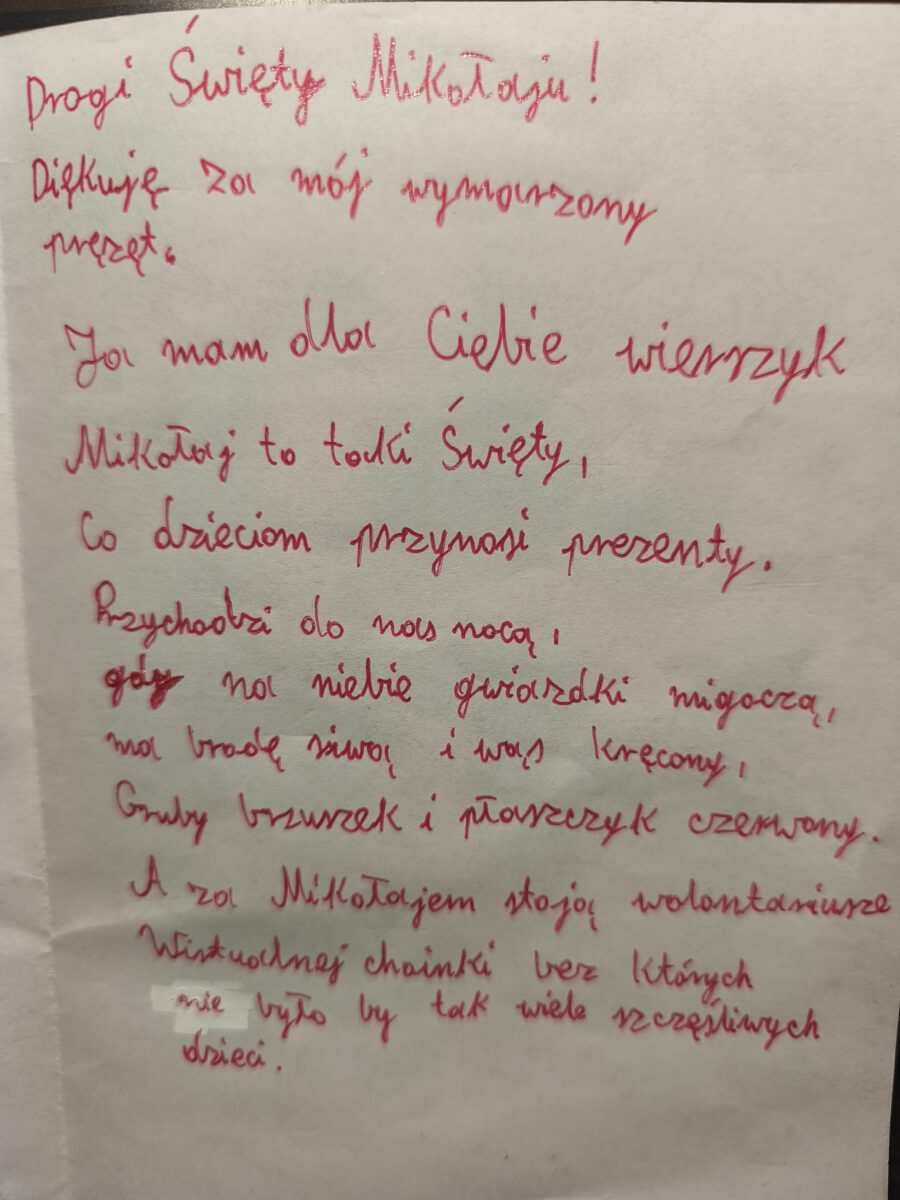 Drogi Święty Mikołaju!
Diękuję za mój wymarzony
pręzęt.
Ja mam dla Ciebie wierszyk
Mikołaj to taki Święty,
Co dzieciom przynosi prezenty.
Przychodzi do nas nocą,
gdy na niebie gwiazdki migoczą,
ma brodę siwą i wąs kręcony,
Gruby brzuszek i płaszczyk czerwony.
A za Mikołajem stoją wolontariusze
Wirtualnej choinki bez których
nie było by tak wiele szczęśliwych
dzieci.